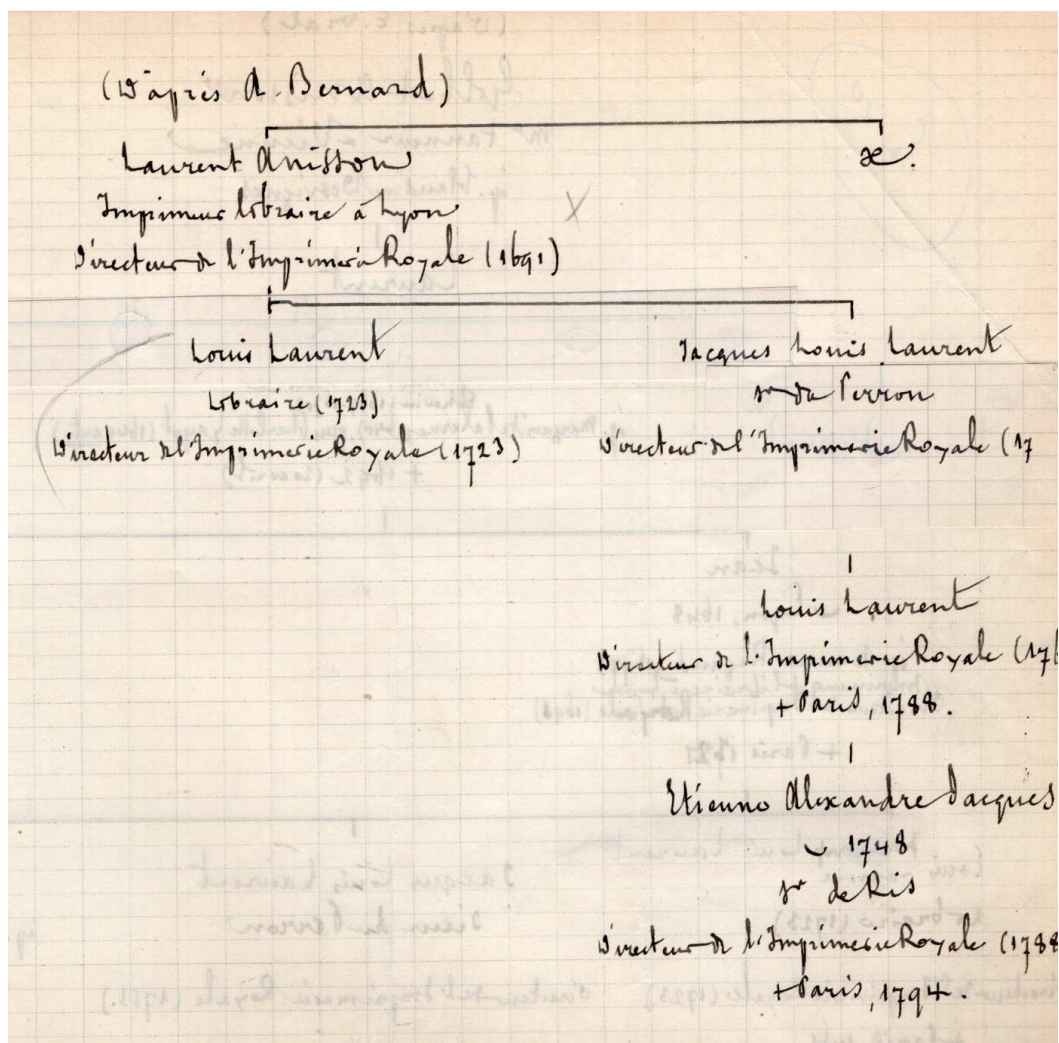 (D'après A. Bernard)
Laurent Anisson
x.
Imprimeur libraire à Lyon
Directeur de l'Imprimerie Royale (1691)
Louis Laurent
Libraire (1723)
Directeur de l'Imprimerie Royale (1723)
Jacques Louis Laurent
sr du Perron
Directeur de l'Imprimerie Royale (17
Louis Laurent
Directeur de l'Imprimerie Royale (176
+ Paris, 1788.
Etienne Alexandre Jacques
1748
sr de Ris
Directeur de l'Imprimerie Royale (1788
+ Paris, 1794.